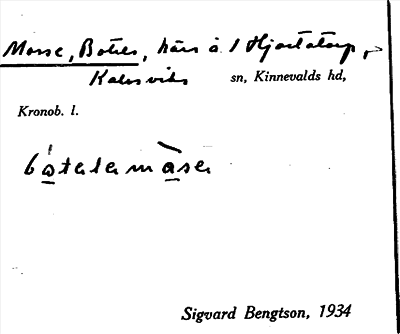 Mosse, Botes, härs å 1 Hjortatorp,
Kalvsviks sn, Kinnevalds hd,
Kronob. l.
bo̱talama̱sen
Sigvard Bengtson, 1934